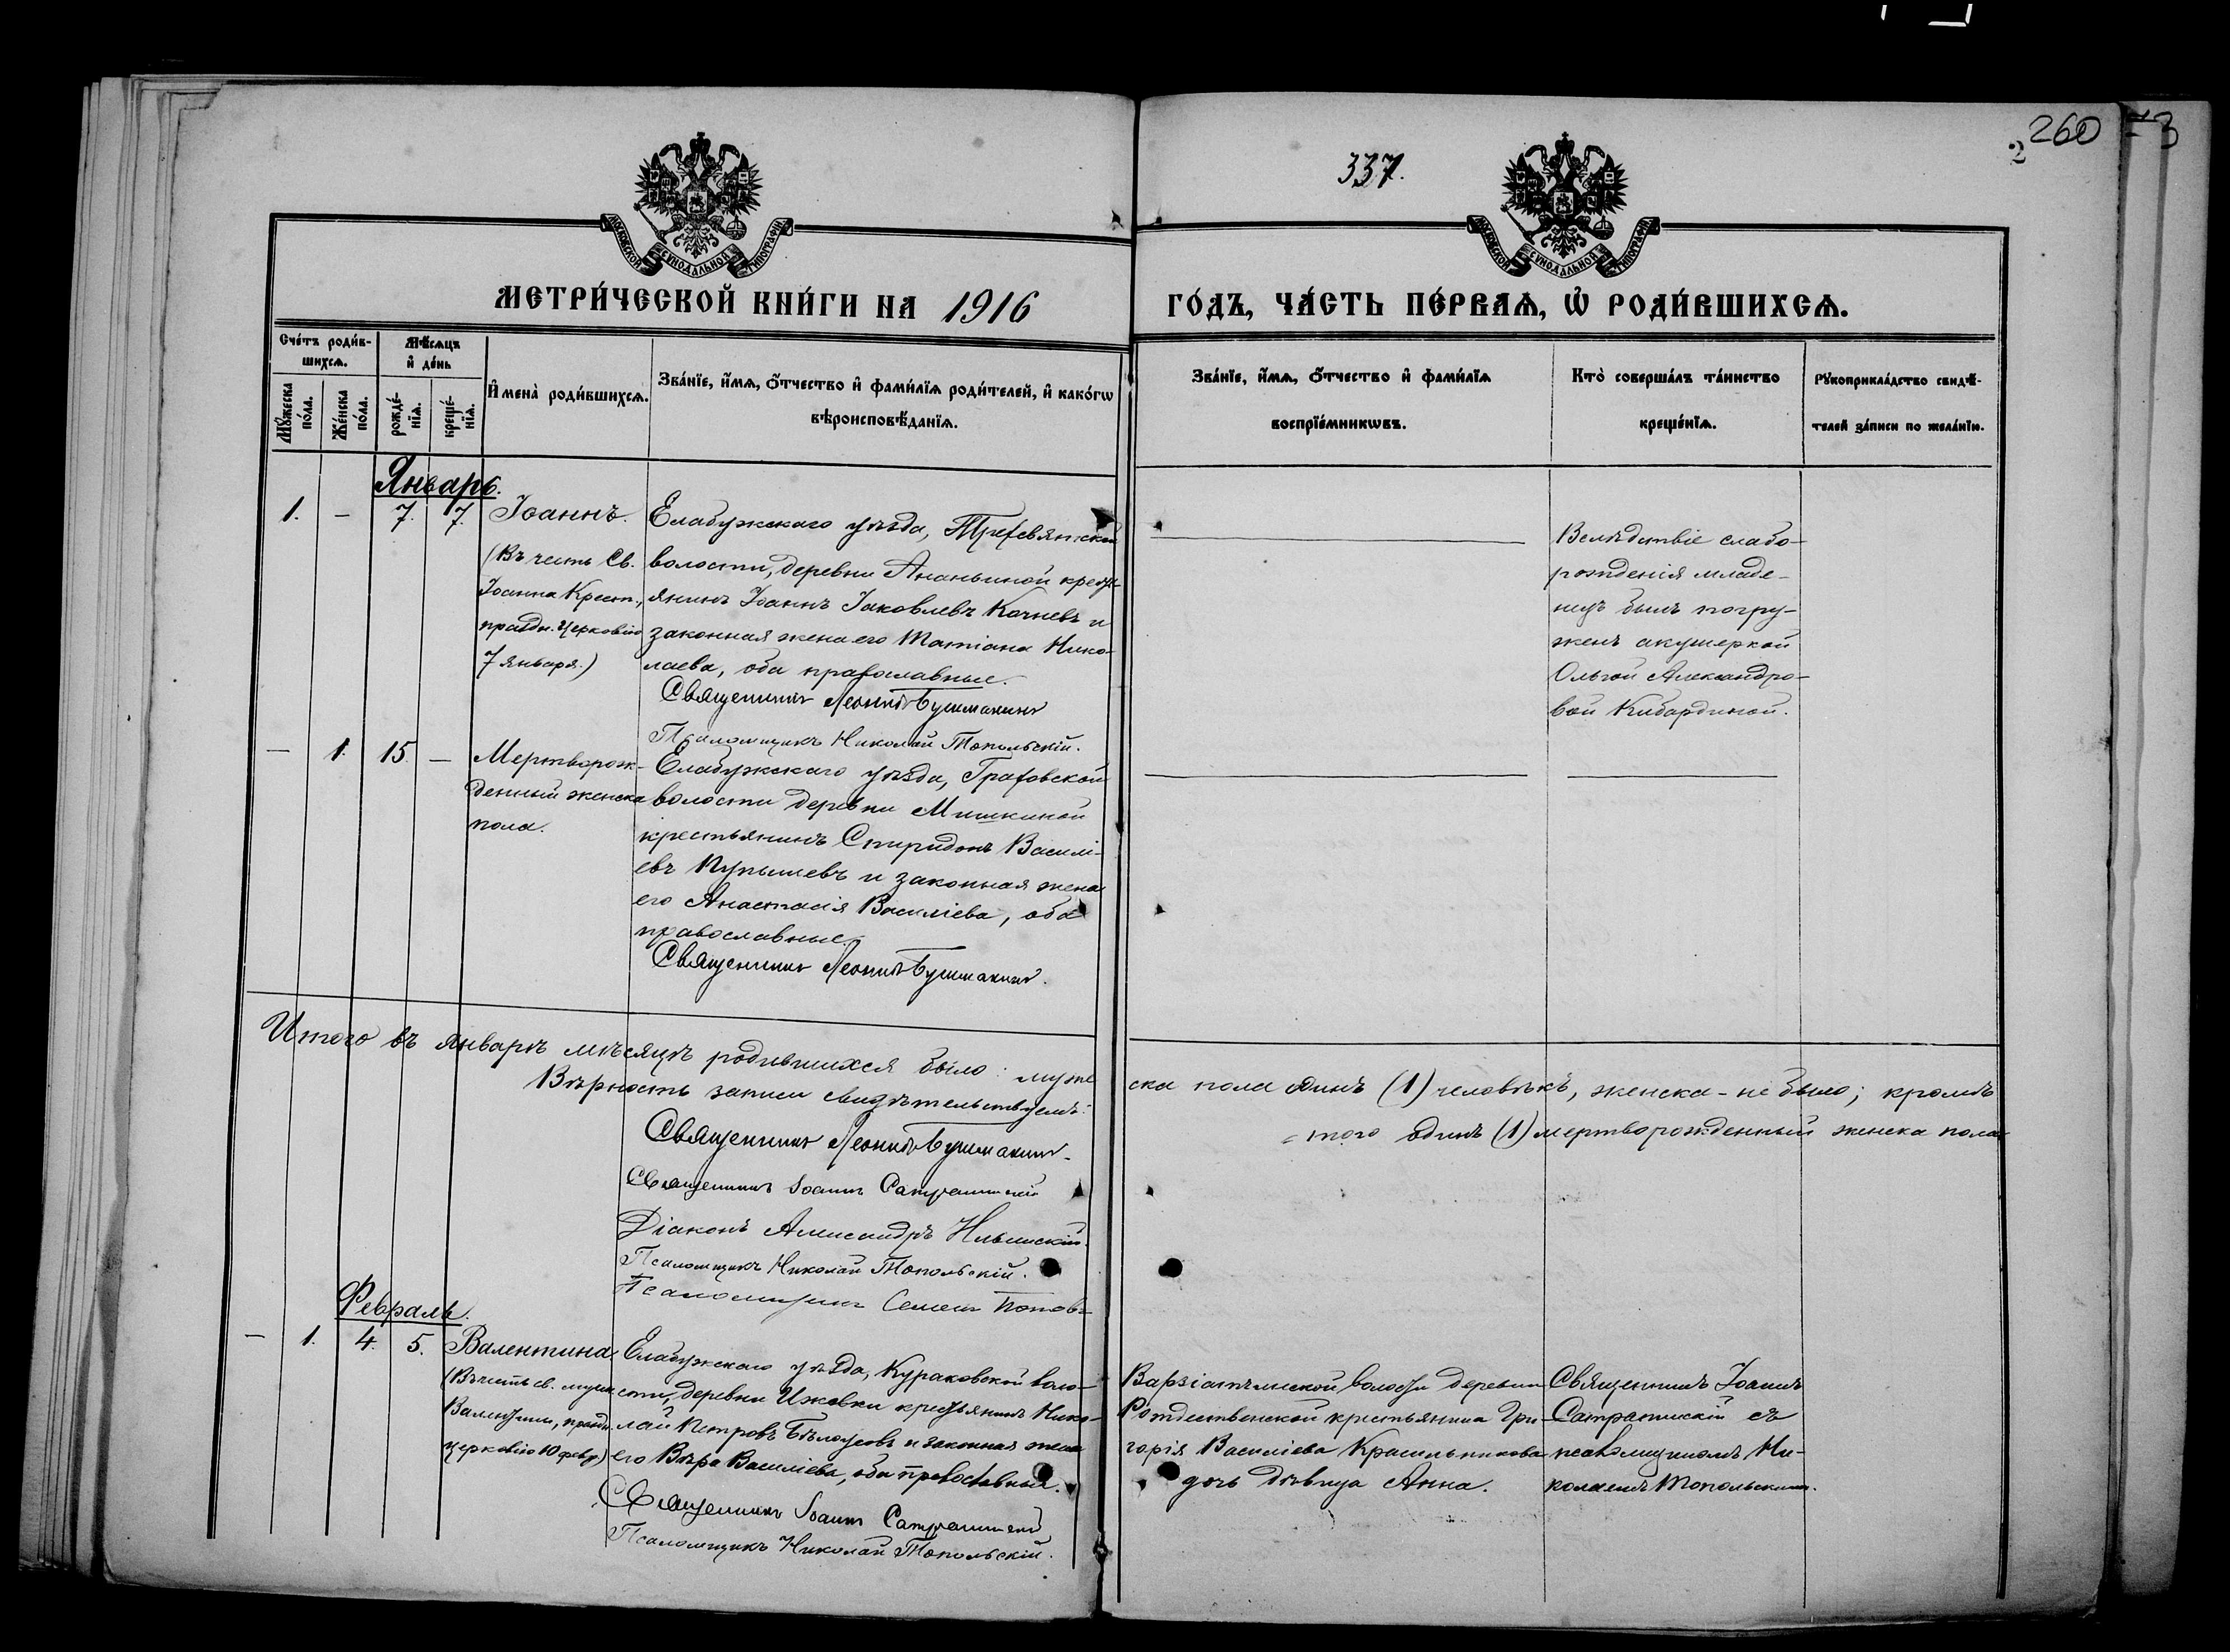 337.
2
260
3
МОСКОВСКОЙ СУНОДАЛЬНОЙ ТИПОГРАФІИ
МОСКОВСКОЙ СУНОДАЛЬНОЙ ТИПОГРАФІИ
МЕТРИ́ЧЕСКОЙ КНИ́ГИ НА 1916
ГО́ДЪ, ЧА́СТЬ ПЕ́РВАѦ, Ѡ҆ РОДИ́ВШИХСѦ.
Сче́тъ роди́в-
шихсѧ.
Мѣ́сѧцъ
и҆ де́нь
Мꙋ́жеска
по́ла.
Же́нска
по́ла.
рожде́-
нїѧ.
креще́-
нїѧ.
И҆мена̀ роди́вшихсѧ.
Зва́нїе, и҆́мѧ, ѻ҆́тчество и҆ фами́лїѧ роди́телей, и҆ како́гѡ
вѣроисповѣ́данїѧ.
Зва́нїе, и҆́мѧ, ѻ҆́тчество и҆ фами́лїѧ
воспрїе́мникѡвъ.
Кто̀ соверша́лъ та́инство
креще́нїѧ.
Рꙋкоприкла́дство свидѣ́-
телей за́писи по жела́нїю.
Январь.
1. – 7. 7. Іоаннъ.
(Въ честь Св.
Іоанна Крест.,
праздн. Церковію
7 января.)
Елабужскаго уѣзда,
волости, деревни Ананьиной крест-
янинъ Іоаннъ Іаковлевъ Кочневъ и
законная жена его Татіана Нико-
лаева, оба православные.
Священникъ Леонидъ Бушмакинъ
Псаломщикъ Николай Топольскій.
Вслѣдствіе слабо-
рожденія младе-
нецъ былъ погру-
женъ акушеркой
Ольгой Александро-
вой Кибардиной.
– 1. 15. – Мертворож-
денный женска
пола.
Елабужскаго уѣзда, Граховской
волости деревни Мишкиной
крестьянинъ Спиридонъ Василі-
евъ Купышевъ и законная жена
его Анастасія Василіева, оба
православные.
Священникъ Леонидъ Бушмакинъ.
Итого въ январѣ мѣсяцѣ родившихся было: муже
ска пола одинъ (1) человѣкъ, женска – не было; кромѣ
того одинъ (1) мертворожденный женска пола
Вѣрность записи свидѣтельствуемъ:
Священникъ Леонидъ Бушмакинъ.
Священникъ Іоаннъ
Діаконъ Александръ
Псаломщикъ Николай Топольскій.
Псаломщикъ Семенъ Поповъ
Февраль.
– 1. 4. 5. Валентина
(Въ честь св. муч.
Валентины, празд.
церковію 10 февр.)
Елабужскаго уѣзда, Кураковской воло-
сти, деревни Ижовки крестьянинъ Нико-
лай Петровъ Бѣлоусовъ и законная жена
его Вѣра Василіева, оба православные.
Священникъ Іоаннъ
Псаломщикъ Николай Топольскій.
Варзіатчинской волости деревни
Рождественской крестьянина Гри-
горія Василіева Красильникова
дочь дѣвица Анна.
Священникъ Іоаннъ
съ
псаломщикомъ Ни-
колаемъ Топольскимъ.